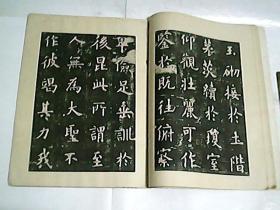 玉砌接於土階
茅茨續於瓊室
仰觀壯麗可作
鑒於既往俯察
卑儉足垂訓於
後昆此所謂至
人無為大聖不
作彼竭其力我